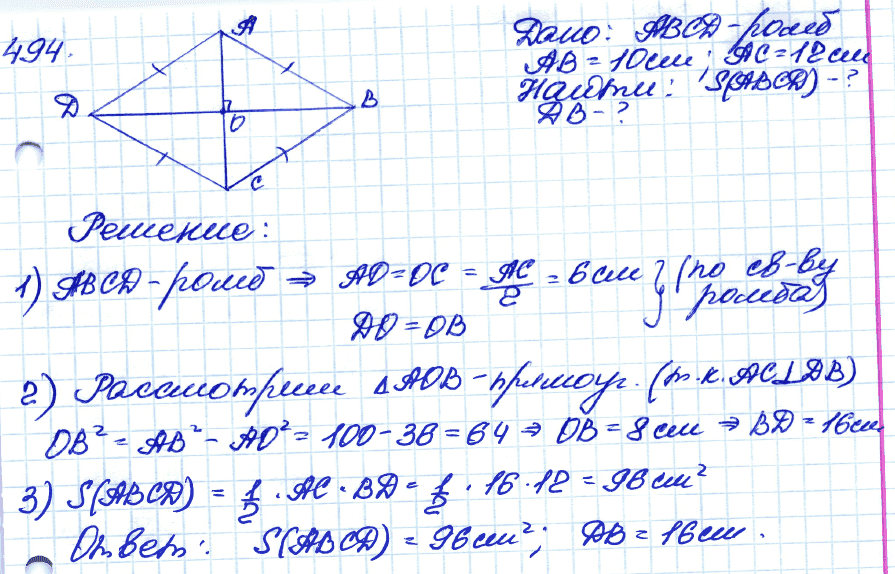 494.
A
B
C
D
O
Дано: ABCD - ромб
AB = 10 см ; AC = 12 см
Найти: S(ABCD) - ?
DB - ?
Решение:
1) ABCD - ромб ⇒ AO = OC = AC/2 = 6 см } (по св-ву
DO = OB ромба)
2) Рассмотрим △AOB - прямоуг. (т.к. AC⊥DB)
OB² = AB² - AO² = 100 - 36 = 64 ⇒ OB = 8 см ⇒ BD = 16 см
3) S(ABCD) = 1/2 · AC · BD = 1/2 · 16 · 12 = 96 см²
Ответ: S(ABCD) = 96 см²; DB = 16 см.